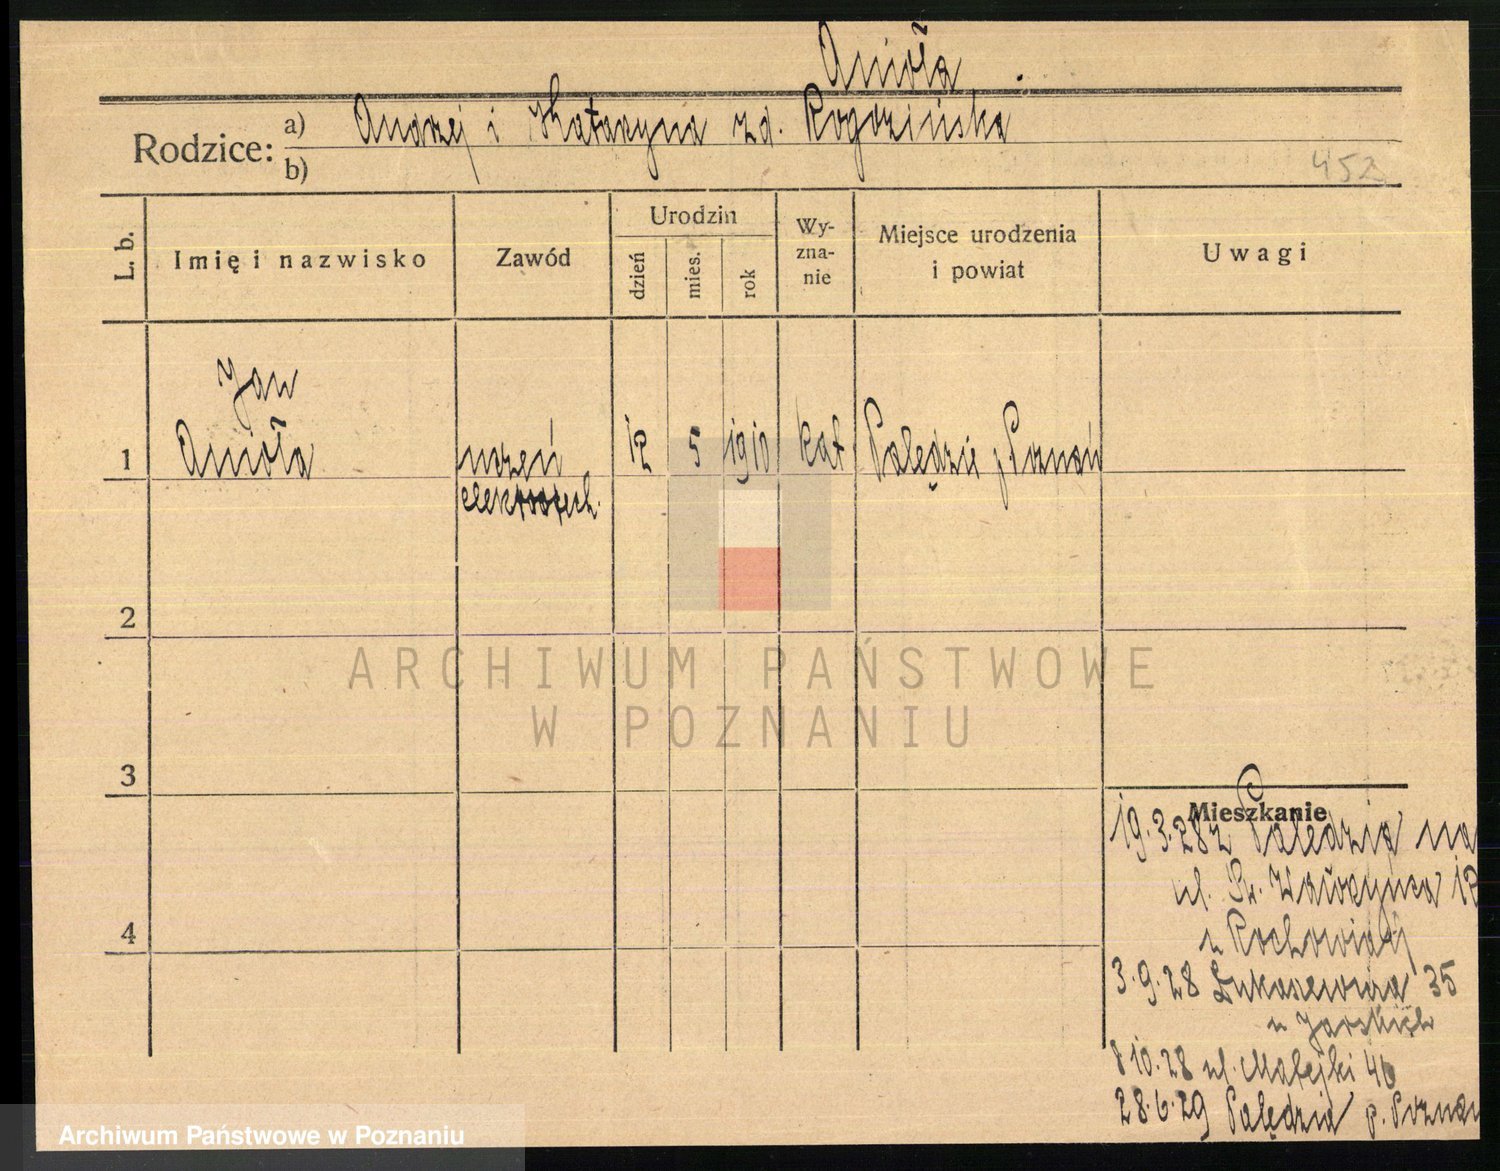 Anioła
Rodzice: a) Andrzej i Katarzyna zd. Rogozińska
b)
452
L. b.
Imię i nazwisko
Zawód
Urodzin
dzień
mies.
rok
Wy-
zna-
nie
Miejsce urodzenia
i powiat
Uwagi
Jan
1 Anioła uczeń 12 5 1910 kat Palędzie p Poznań
elektrotech.
2
ARCHIWUM PAŃSTWOWE
W POZNANIU
3
Mieszkanie
19.3.28 z Palędzia na
ul. Św. Wawrzyńca 12
u
4
3.9.28 Łukaszewicza 35
u
8 10.28 ul. Matejki 46
28.6.29 Palędzie p. Poznań
Archiwum Państwowe w Poznaniu